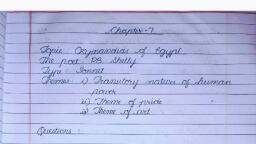 Chapter-7
Topic Ozymandias of Egypt
The poet : PB Shelly
Type : Sonnet
Themes : i) Transitory nature of human
power
ii) Theme of pride
iii) Theme of art
Questions :